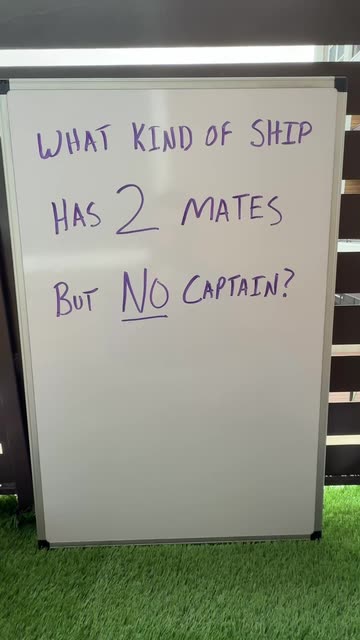 WHAT KIND OF SHIP
HAS 2 MATES
BUT NO CAPTAIN?